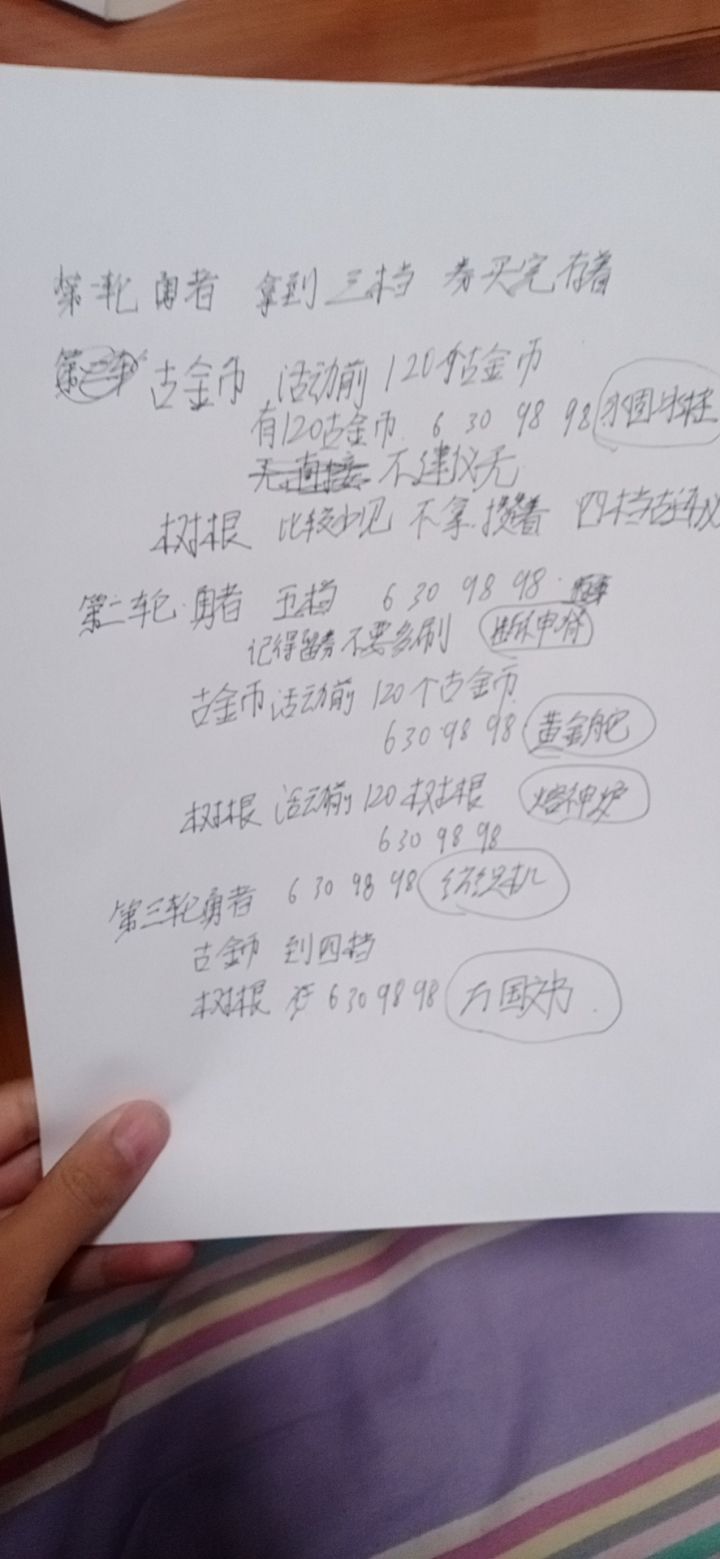 第一轮 勇者 拿到 三档 券买完 存着
古金币 活动前 120个古金币
有120古金币 6 30 98 98
不建议无
树根 比较少见 不拿 攒着 四档
第二轮 勇者 五档 6 30 98 98
记得留券 不要多刷
古金币 活动前 120个古金币
6 30 98 98 黄金舵
树根 活动前 120 树根 熔神炉
6 30 98 98
第三轮 勇者 6 30 98 98 纺织机
古金币 到四档
树根 6 30 98 98 万国文书